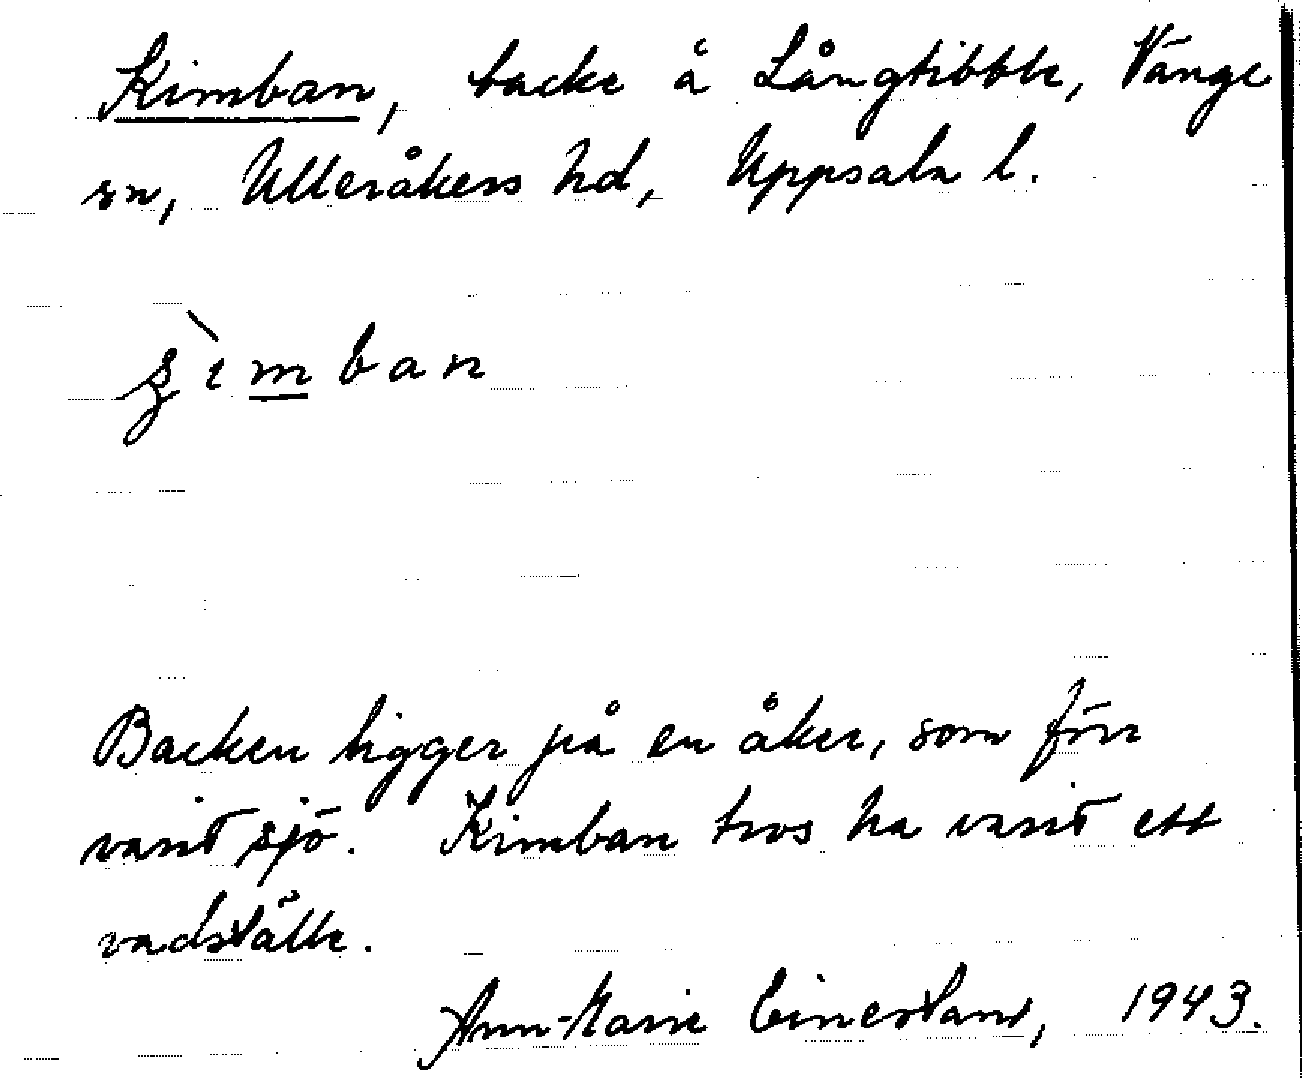 Kimban, backe å Långtibble, Vänge
sn, Ulleråkers hd, Uppsala l.
Backen ligger på en åker, som förr
varit sjö. Kimban tros ha varit ett
vadställe.
Ann-Marie 1943.